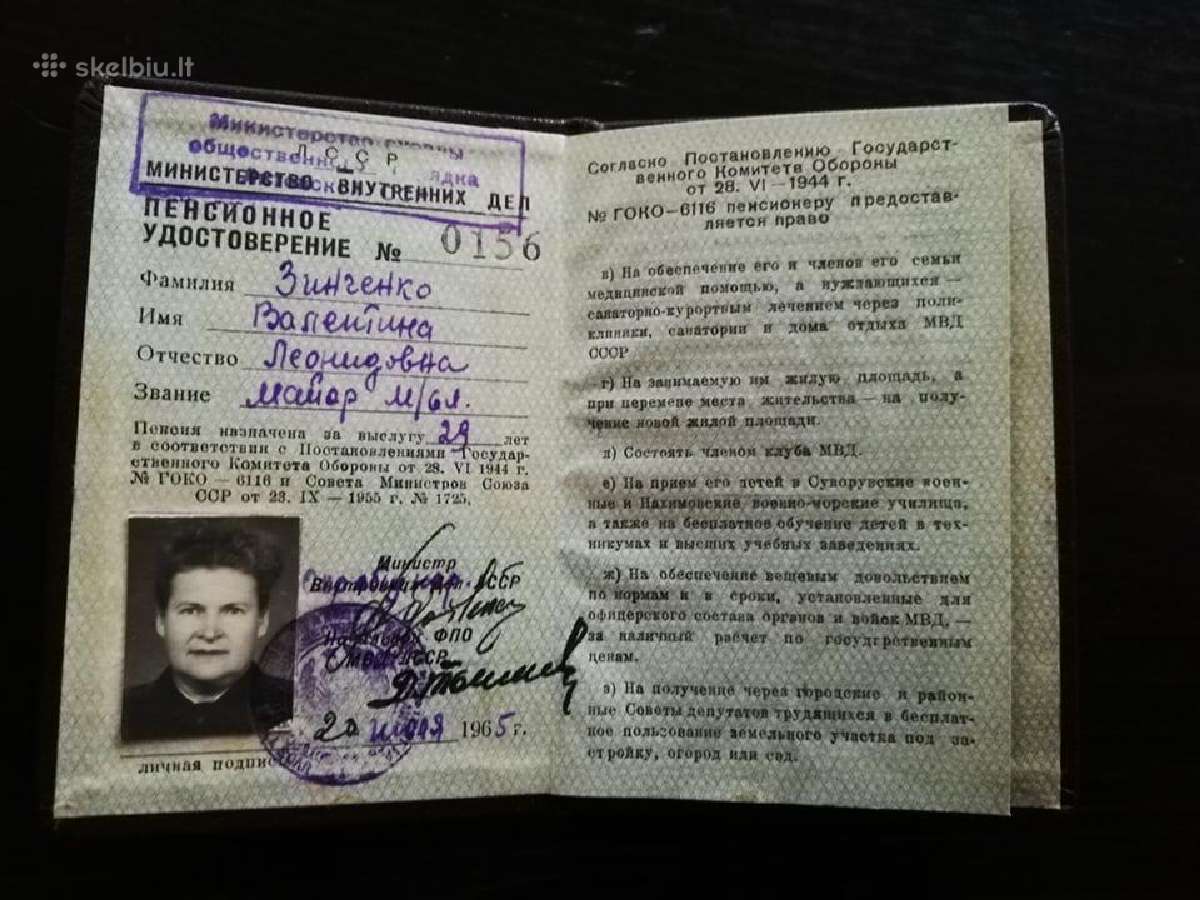 skelbiu.lt
Министерство охраны
общественного порядка
ЛССР
МИНИСТЕРСТВО ВНУТРЕННИХ ДЕЛ
ПЕНСИОННОЕ
УДОСТОВЕРЕНИЕ № 0156
Фамилия Зинченко
Имя Валентина
Отчество Леонидовна
Звание майор м/сл.
Пенсия назначена за выслугу 29 лет
в соответствии с Постановлениями Государ-
ственного Комитета Обороны от 28. VI 1944 г.
№ ГОКО — 6116 и Совета Министров Союза
ССР от 23. IX — 1955 г. № 1725.
Министр
ЛССР
ФПО
МВД ЛССР
20 1965 г.
личная подпись
Согласно Постановлению Государст-
венного Комитета Обороны
от 28. VI — 1944 г.
№ ГОКО—6116 пенсионеру предостав-
ляется право
в) На обеспечение его и членов его семьи
медицинской помощью, а нуждающихся —
санаторно-курортным лечением через поли-
клиники, санатории и дома отдыха МВД
СССР
г) На занимаемую им жилую площадь, а
при перемене места жительства — на полу-
чение новой жилой площади.
д) Состоять членом клуба МВД.
е) На прием его детей в Суворувские воен-
ные и Нахимовские военно-морские училища,
а также на бесплатное обучение детей в тех-
никумах и высших учебных заведениях.
ж) На обеспечение вещевым довольствием
по нормам и в сроки, установленные для
офицерского состава органов и войск МВД, —
за наличный расчет по государственным
ценам.
з) На получение через городские и район-
ные Советы депутатов трудящихся в бесплат-
ное пользование земельного участка под за-
стройку, огород или сад.